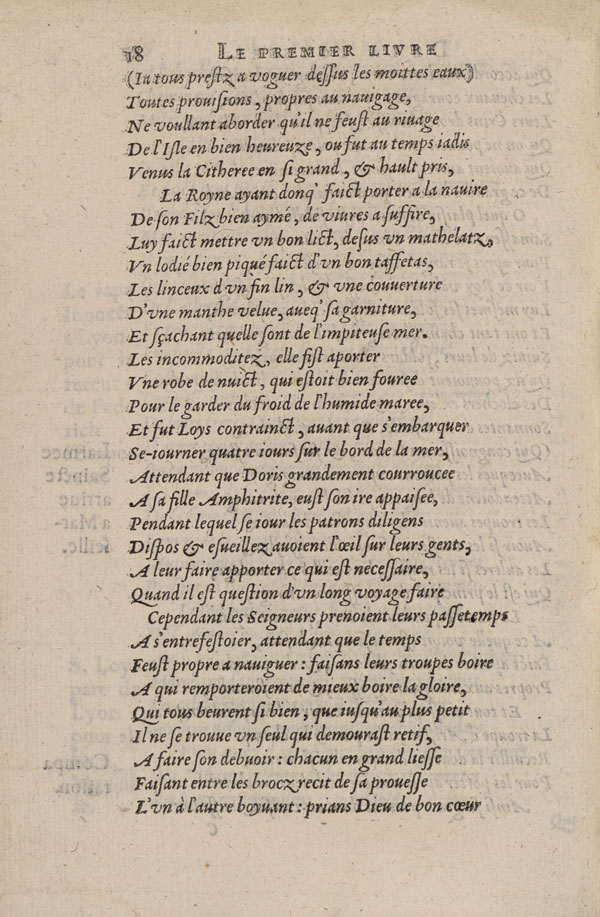 18 LE PREMIER LIVRE
(Ia tous prestz a voguer dessus les moittes eaux)
Toutes prouisions, propres au nauigage,
Ne voullant aborder qu'il ne feust au riuage
De l'Isle en bien heureuze, ou fut au temps iadis
Venus la Citheree en si grand, & hault pris,
La Royne ayant donq' faict porter a la nauire
De son Filz bien aymé, de viures a suffire,
Luy faict mettre vn bon lict, desus vn mathelatz,
Vn lodié bien piqué faict d'vn bon taffetas,
Les linceux d'vn fin lin, & vne couuerture
D'vne manthe velue, aueq' sa garniture,
Et sçachant quelle sont de l'impiteuse mer.
Les incommoditez, elle fist aporter
Vne robe de nuict, qui estoit bien fouree
Pour le garder du froid de l'humide maree,
Et fut Loys contrainct, auant que s'embarquer
Se-iourner quatre iours sur le bord de la mer,
Attendant que Doris grandement courroucee
A sa fille Amphitrite, eust son ire appaisée,
Pendant lequel se iour les patrons diligens
Dispos & esueillez auoient l'œil sur leurs gents,
A leur faire apporter ce qui est necessaire,
Quand il est question d'vn long voyage faire
Cependant les Seigneurs prenoient leurs passetemps
A s'entrefestoier, attendant que le temps
Feust propre a nauiguer: faisans leurs troupes boire
A qui remporteroient de mieux boire la gloire,
Qui tous beurent si bien, que iusqu'au plus petit
Il ne se trouue vn seul qui demourast retif,
A faire son debuoir: chacun en grand liesse
Faisant entre les brocz recit de sa prouesse
L'vn à l'autre boyuant: prians Dieu de bon cœur